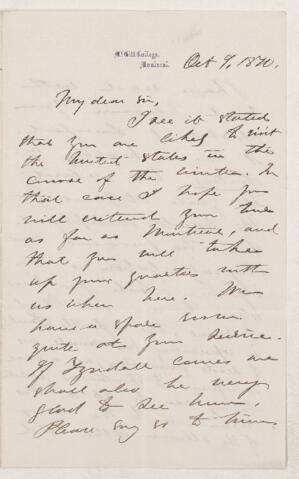 McGill College,
Montreal.
Oct 9, 1870.
My dear Sir,
I see it stated
that you are likely to visit
the United States in the
course of the winter. In
that case I hope you
will extend your tour
as far as Montreal, and
that you will take
up your quarters with
us when here. We
have a spare room
quite at your service.
If Tyndall comes we
shall also be very
glad to see him.
Please say so to him